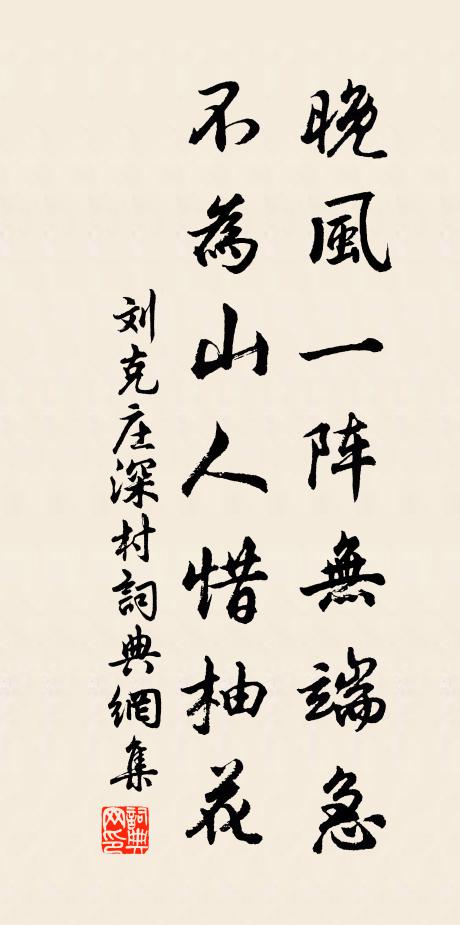 晚風一阵無端急
不為山人惜柚花
刘克庄深村詞典網集
詞典
网印